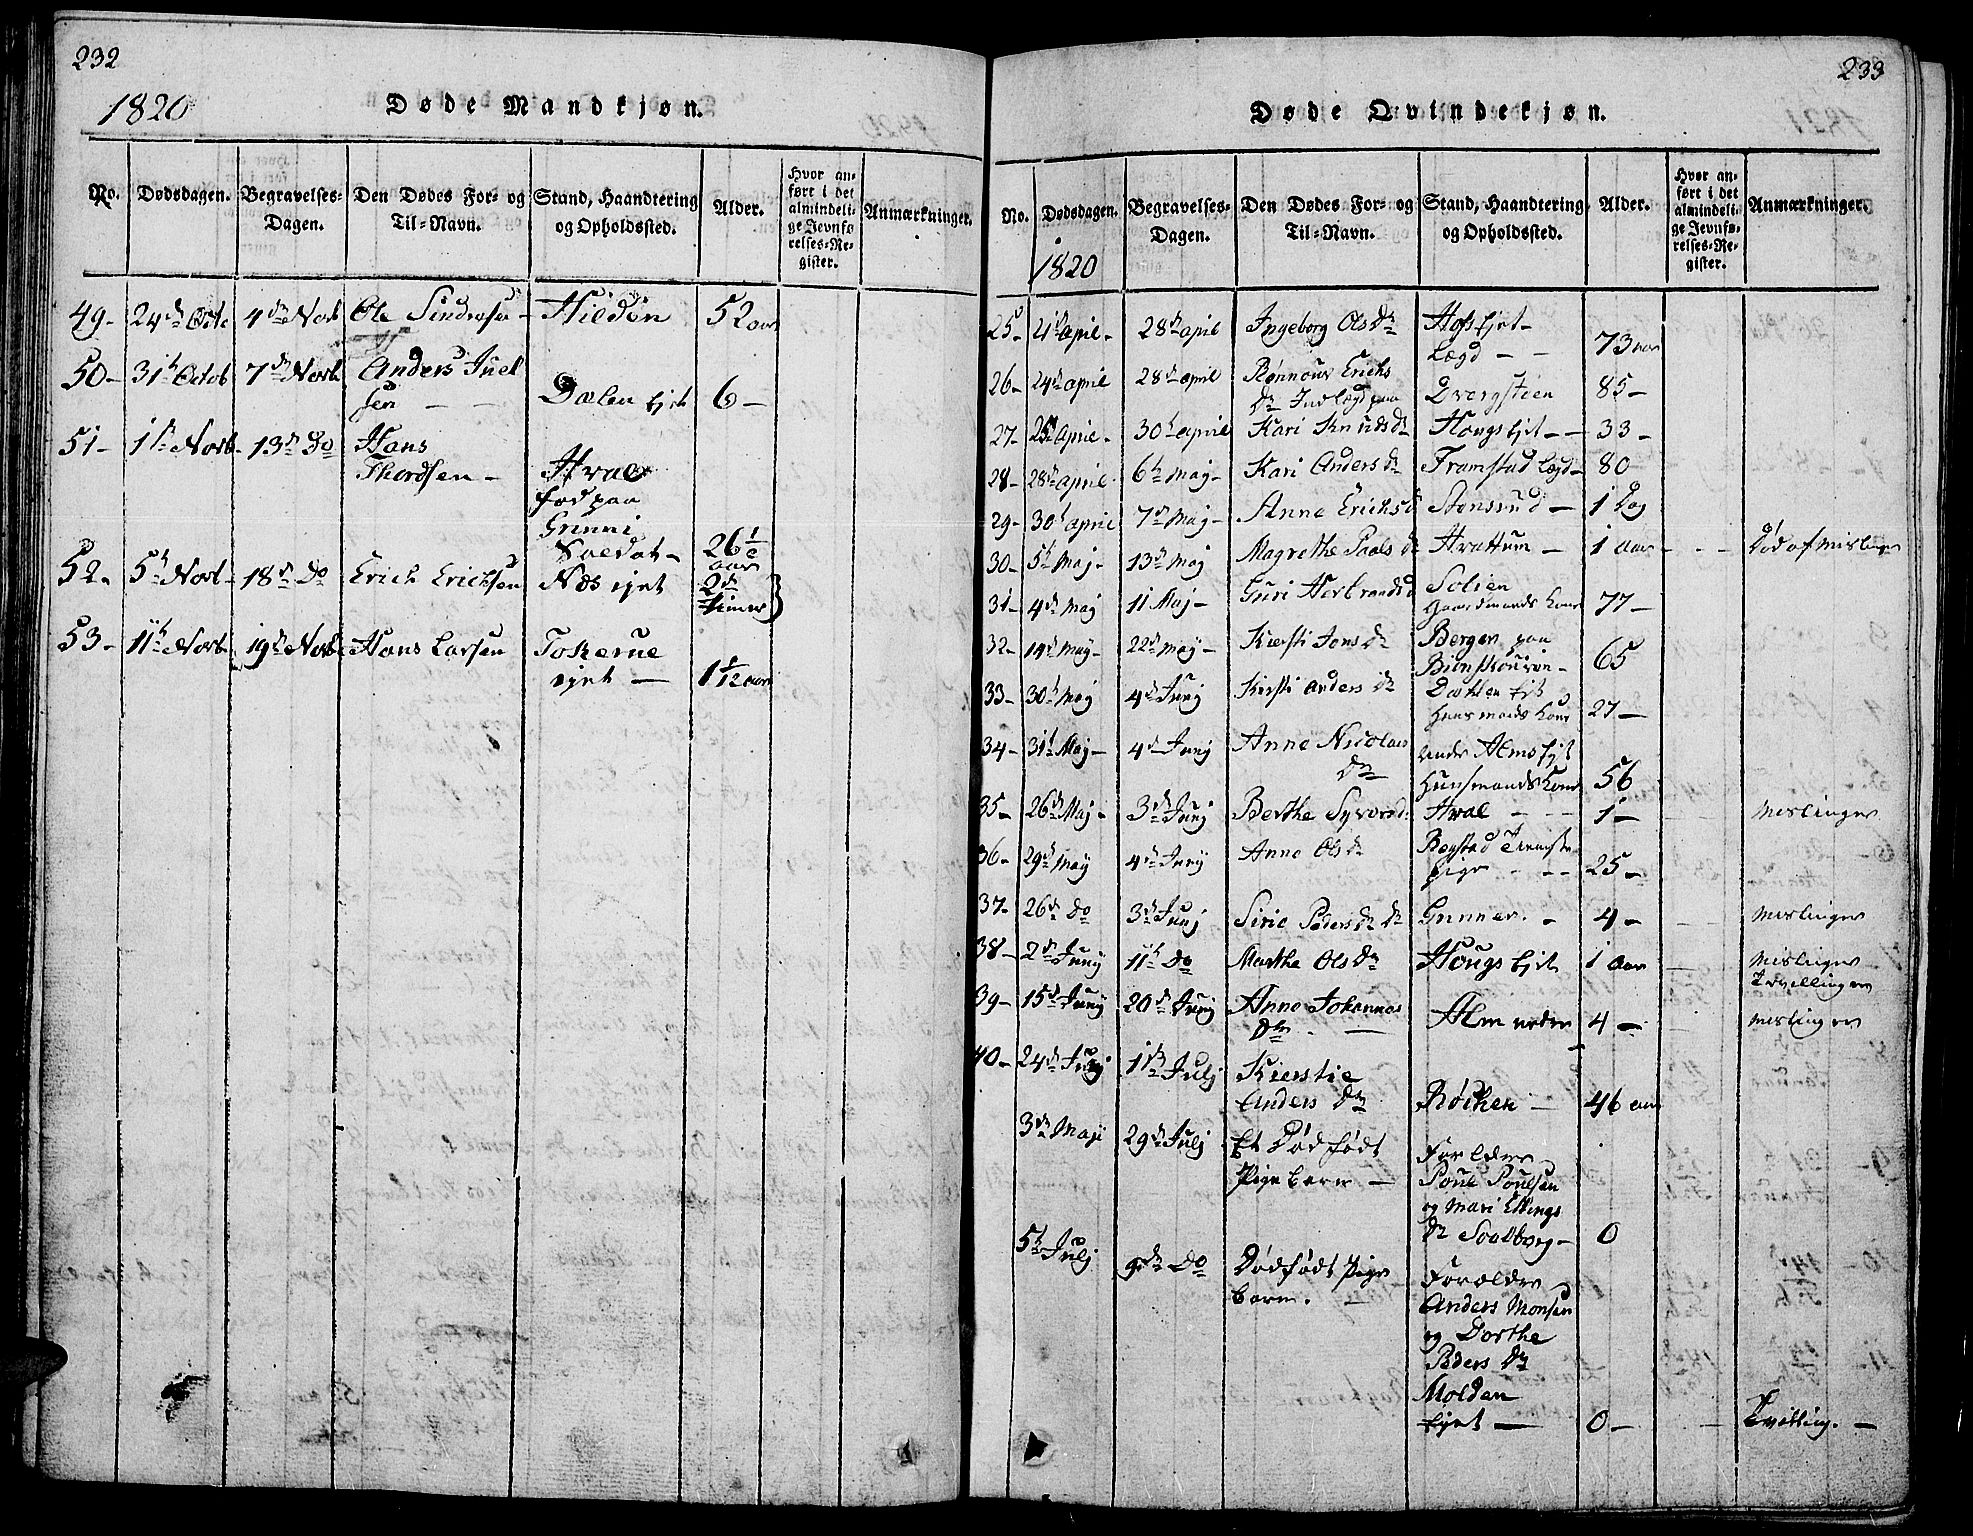 232
1820
Døde Mandkjøn.
No. Dødsdagen. Begravelses-Dagen. Den Dødes For- og Til-Navn. Stand, Haandtering og Opholdssted. Alder. Hvor anført i det almindelige Jevnførelses-Register. Anmærkninger.
49- 24de Octo 4de Novb Ole Hilden 52 aar
50- 31te Octob 7de Novb Anders Juel
sen - Dælen Ejet 6-
51- 1ste Novb 13de Do Hans
Thordsen - Hval
fød paa
Soldat - 26 1/2
aar
52- 5te Novb 18de Do Erich Erichsen Næs ejet 2de
timer
53- 11te Novb 19de Novb Hans Larsen Tokerue
ejet - 1 1/12 aar
233
Døde Qvindekjøn.
No. Dødsdagen. Begravelses-Dagen. Den Dødes For- og Til-Navn. Stand, Haandtering og Opholdssted. Alder. Hvor anført i det almindelige Jevnførelses-Register. Anmærkninger.
1820
25- 21de april- 28de april Ingeborg Olsdr Hofs Ejet-
Lægd - - 73 aar
26- 24de april 28de april Rønnou Erichs
dr Ind Lægd paa Dvergstien 85-
27- april- 30te april Kari Knudsdr Hougs Ejet- - 33-
28- 28de april- 6te May- Kari Anders dr Framstad Lægd- 80
29- 30te april 7de Maj- Anne Erichsd Stensrud- 1 Dag
30- 5te Maj- 13de Maj Magrethe Paals dr Hvattum - 1 aar - - Død af Mislinger
31- 4de Maj 11 Maj- Guri Herbrandsd Solien
Gaardmands Kone 77-
32- 14de May- 22de May- Kiersti Jons dr Bergen paa
65
33- 30te Maj 4de Junj Kirsti anders dr Dæhlen Ejet
Huusmands Kone 27-
34- 31te Maj- 4de Junj Anne Nicolai
dr Alms Ejet
Huusmands Kone 56
35- 26de Maj- 3de Junj Berthe Syversd: Hval - - - 1- Mislinger
36- 29de May 4de Junj Anne Ols dr
pige - - - 25-
37- 26de Do 3de Junj Sirie Peders dr dr Grinner. - 4- Mislinger
38- 2de Junj 11te Do Marthe Ols dr Hougs Ejet 1 aar - Mislinger
Tvellinger
39- 15de Junj 20de Junj Anne Johannes
dr. - Alm nedre 4- Mislinger
40- 24de Junj 1ste Julj Kierstie
Anders dr Røthen - 46 aar
3de Maji 29de Julj Et Død født
Pige barn - Forældre
Poul Poulsen
og Mari Ellings
dr Soelberg- 0
5te Julj 9de Do Dødfødt Pige
barn. - Forældre
Anders Monsen
og Dorthe
Peders dr
Molden
Ejet - 0- - Tvilling. -